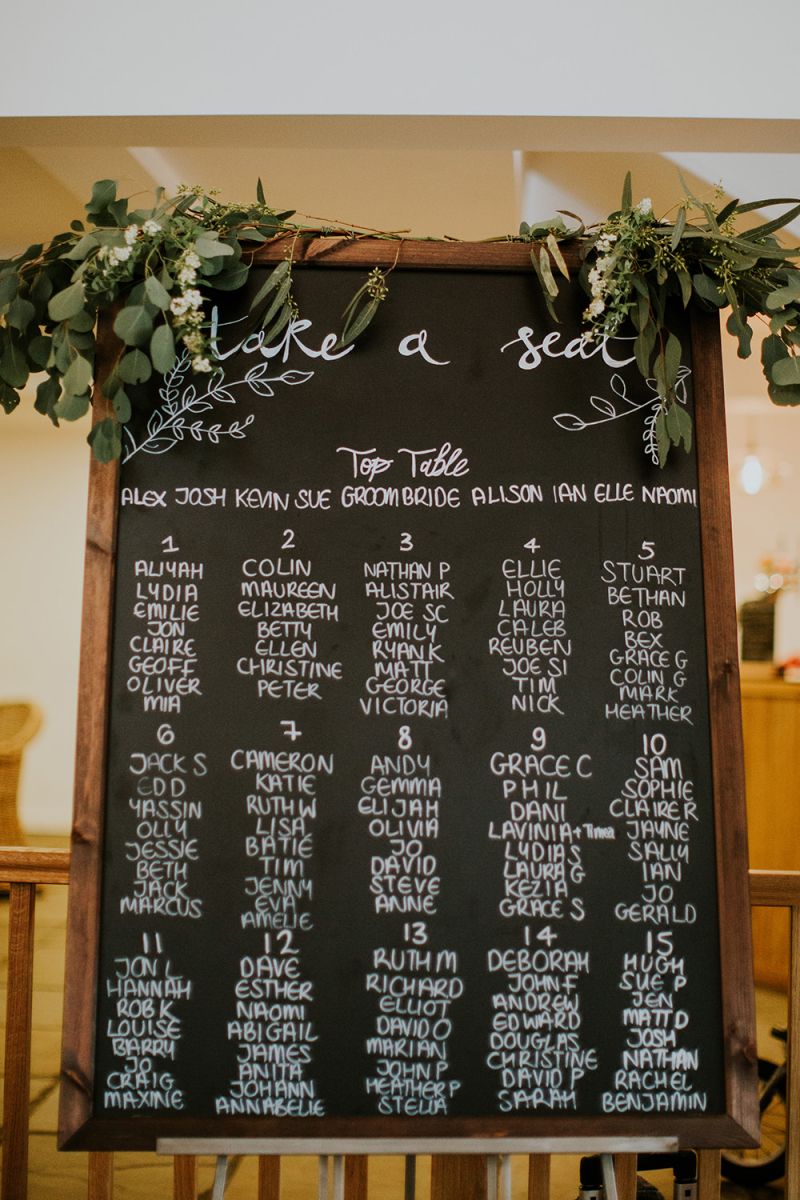 take a seat
Top Table
ALEX JOSH KEVIN SUE GROOM BRIDE ALISON IAN ELLE NAOMI
1
ALIYAH
LYDIA
EMILIE
JON
CLAIRE
GEOFF
OLIVER
MIA
2
COLIN
MAUREEN
ELIZABETH
BETTY
ELLEN
CHRISTINE
PETER
3
NATHAN P
ALISTAIR
JOE SC
EMILY
RYAN K
MATT
GEORGE
VICTORIA
4
ELLIE
HOLLY
LAURA
CALEB
REUBEN
JOE SI
TIM
NICK
5
STUART
BETHAN
ROB
BEX
GRACE G
COLIN G
MARK
HEATHER
6
JACK S
EDD
YASSIN
OLLY
JESSIE
BETH
JACK
MARCUS
7
CAMERON
KATIE
RUTH W
LISA
BATIE
TIM
JENNY
EVA
AMELIE
8
ANDY
GEMMA
ELIJAH
OLIVIA
JO
DAVID
STEVE
ANNE
9
GRACE C
PHIL
DANI
LAVINIA + Timea
LYDIA S
LAURA G
KEZIA
GRACE S
10
SAM
SOPHIE
CLAIRE R
JAYNE
SALLY
IAN
JO
GERALD
11
JON L
HANNAH
ROB K
LOUISE
BARRY
JO
CRAIG
MAXINE
12
DAVE
ESTHER
NAOMI
ABIGAIL
JAMES
ANITA
JOHANN
ANNABELIE
13
RUTH M
RICHARD
ELLIOT
DAVID O
MARIAN
JOHN P
HEATHER P
STELLA
14
DEBORAH
JOHN F
ANDREW
EDWARD
DOUGLAS
CHRISTINE
DAVID P
SARAH
15
HUGH
SUE P
JEN
MATT D
JOSH
NATHAN
RACHEL
BENJAMIN